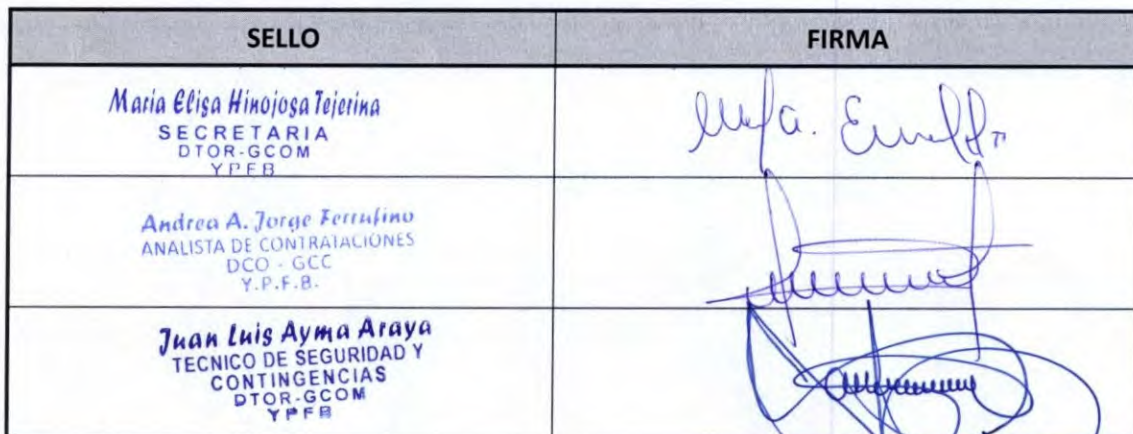 SELLO
FIRMA
Maria Elisa Hinojosa Tejerina
SECRETARIA
DTOR-GCOM
YPFB
Andrea A. Jorge Ferrufino
ANALISTA DE CONTRATACIONES
DCO - GCC
Y.P.F.B.
Juan Luis Ayma Araya
TECNICO DE SEGURIDAD Y
CONTINGENCIAS
DTOR-GCOM
YPFB